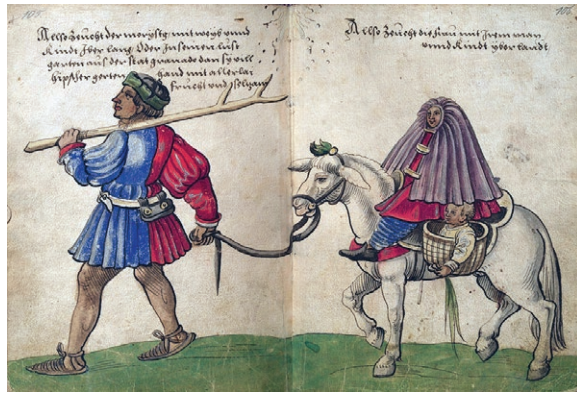 105.
Allso Zeucht der morysg mit weyb vnnd
Kindt Iber lang / Oder In seinen lust
garten aus der stat granada dan sy vill
hipscher gerten hand mit allerlai
frucht vnd
106
Allso Zeucht die frau mit Irem man
vnnd Kindt yber landt